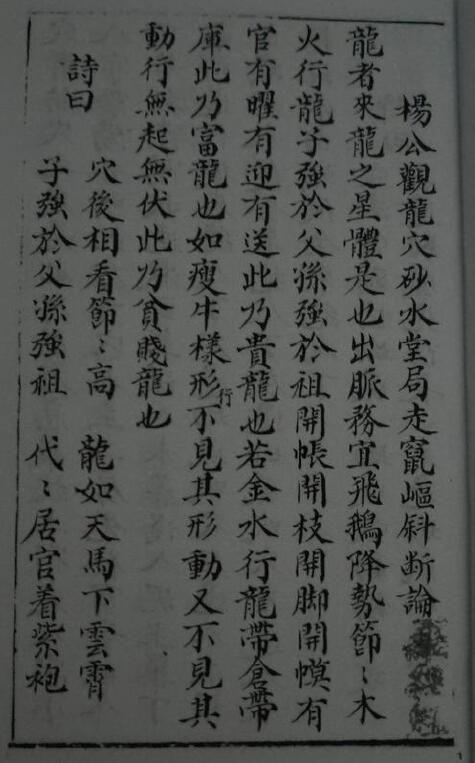 楊公觀龍穴砂水堂局走竄嶇斜斷論
龍者來龍之星體是也出脈務宜飛鵝降勢節〻木
火行龍子強於父孫強於祖開帳開枝開脚開幙有
官有曜有迎有送此乃貴龍也若金水行龍帶倉帶
庫此乃富龍也如瘦牛樣形行不見其形動又不見其
動行無起無伏此乃貧賤龍也
詩曰
穴後相看節〻高 龍如天馬下雲霄
子強於父孫強祖 代〻居官着紫袍